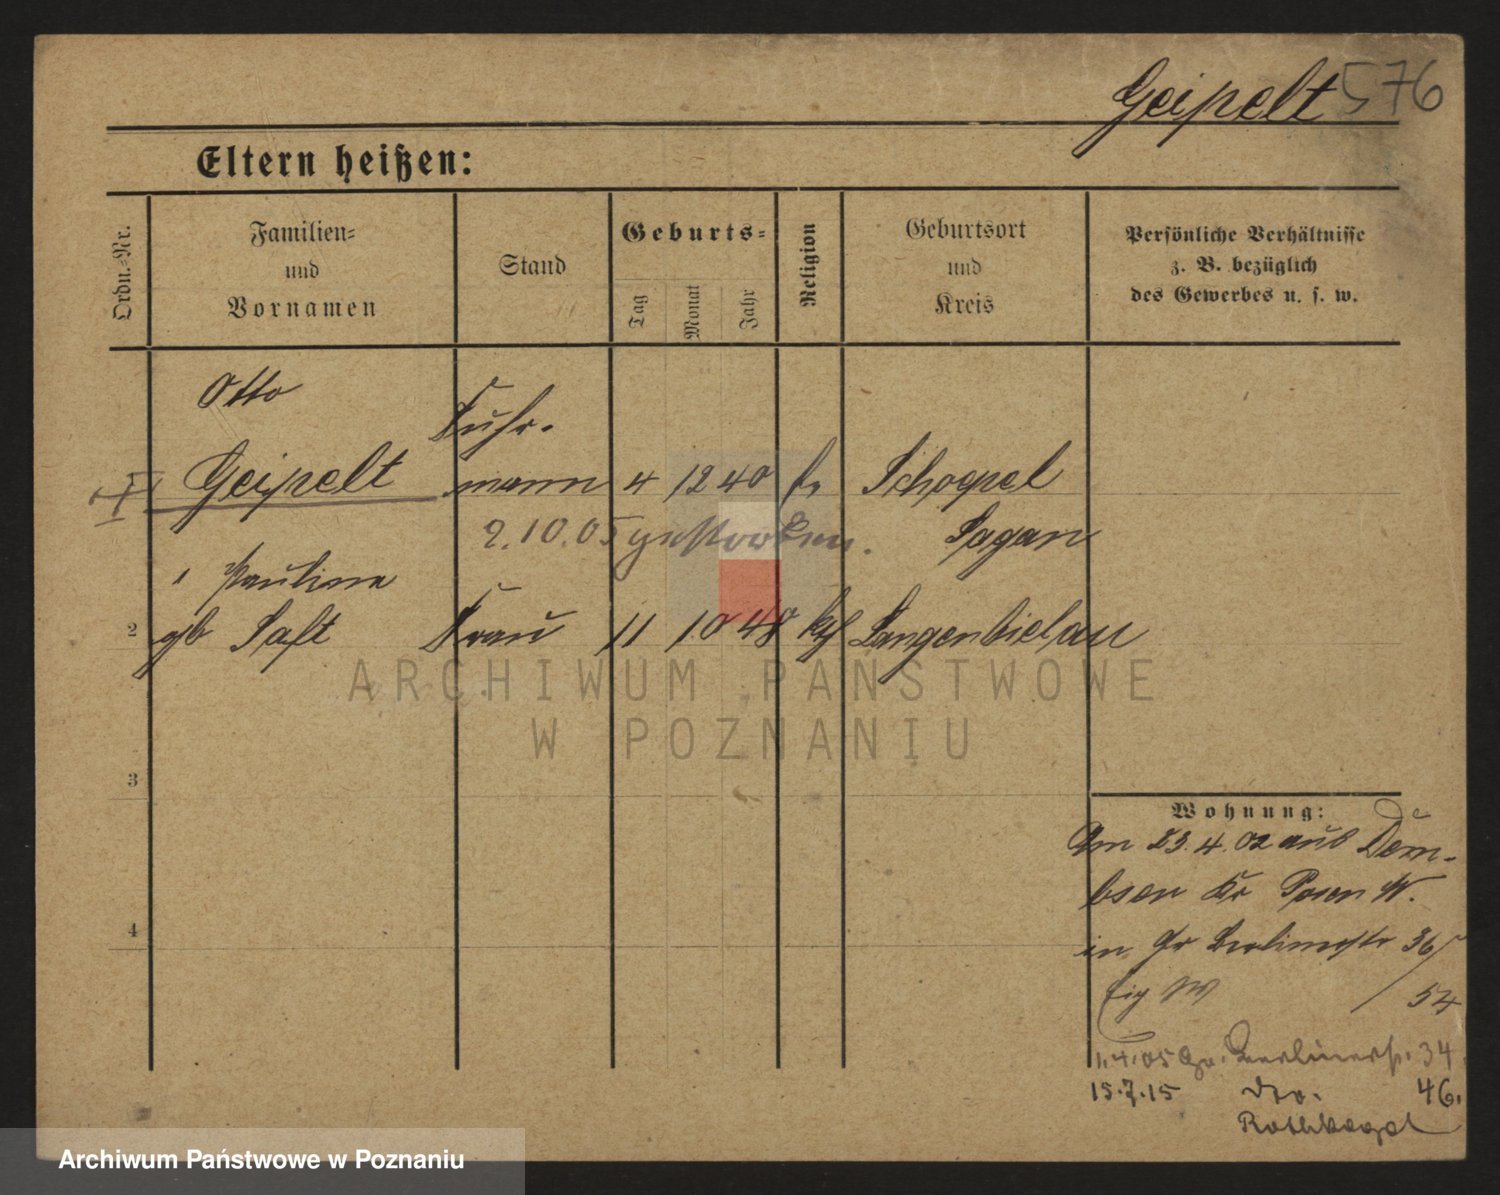 Geipelt 576
Eltern heißen:
Ordn.-Nr.
Familien-
und
Vornamen
Stand
Geburts-
Tag
Monat
Jahr
Religion
Geburtsort
und
Kreis
Persönliche Verhältnisse
z. B. bezüglich
des Gewerbes u. s. w.
Otto
Geipelt
Fuhr-
mann 4 12 40
Schoepel
Sagan
2.10.05 gestorben.
Pauline
2 gb Saft Frau 11 10 48 kth Langenbielau
ARCHIWUM PAŃSTWOWE
W POZNANIU
3
4
Wohnung:
Am 23.4.02 aus Dem-
bsen Kr Posen W.
in Gr Berlinerstr 36
Eig W / 54
1.4.05 Gr. Berlinerstr. 34
15.7.15 dto. 46.
Archiwum Państwowe w Poznaniu